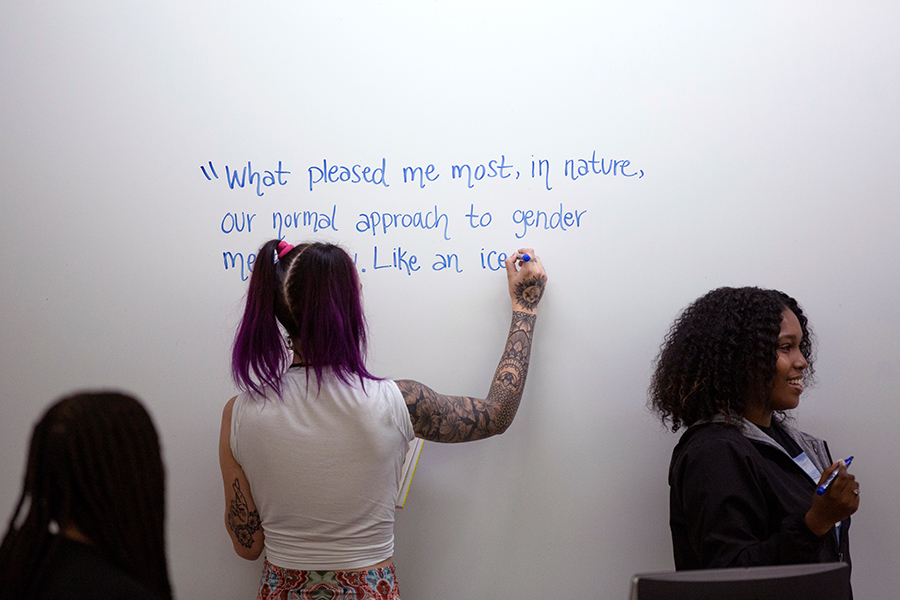 "What pleased me most, in nature,
our normal approach to gender
Like an ice